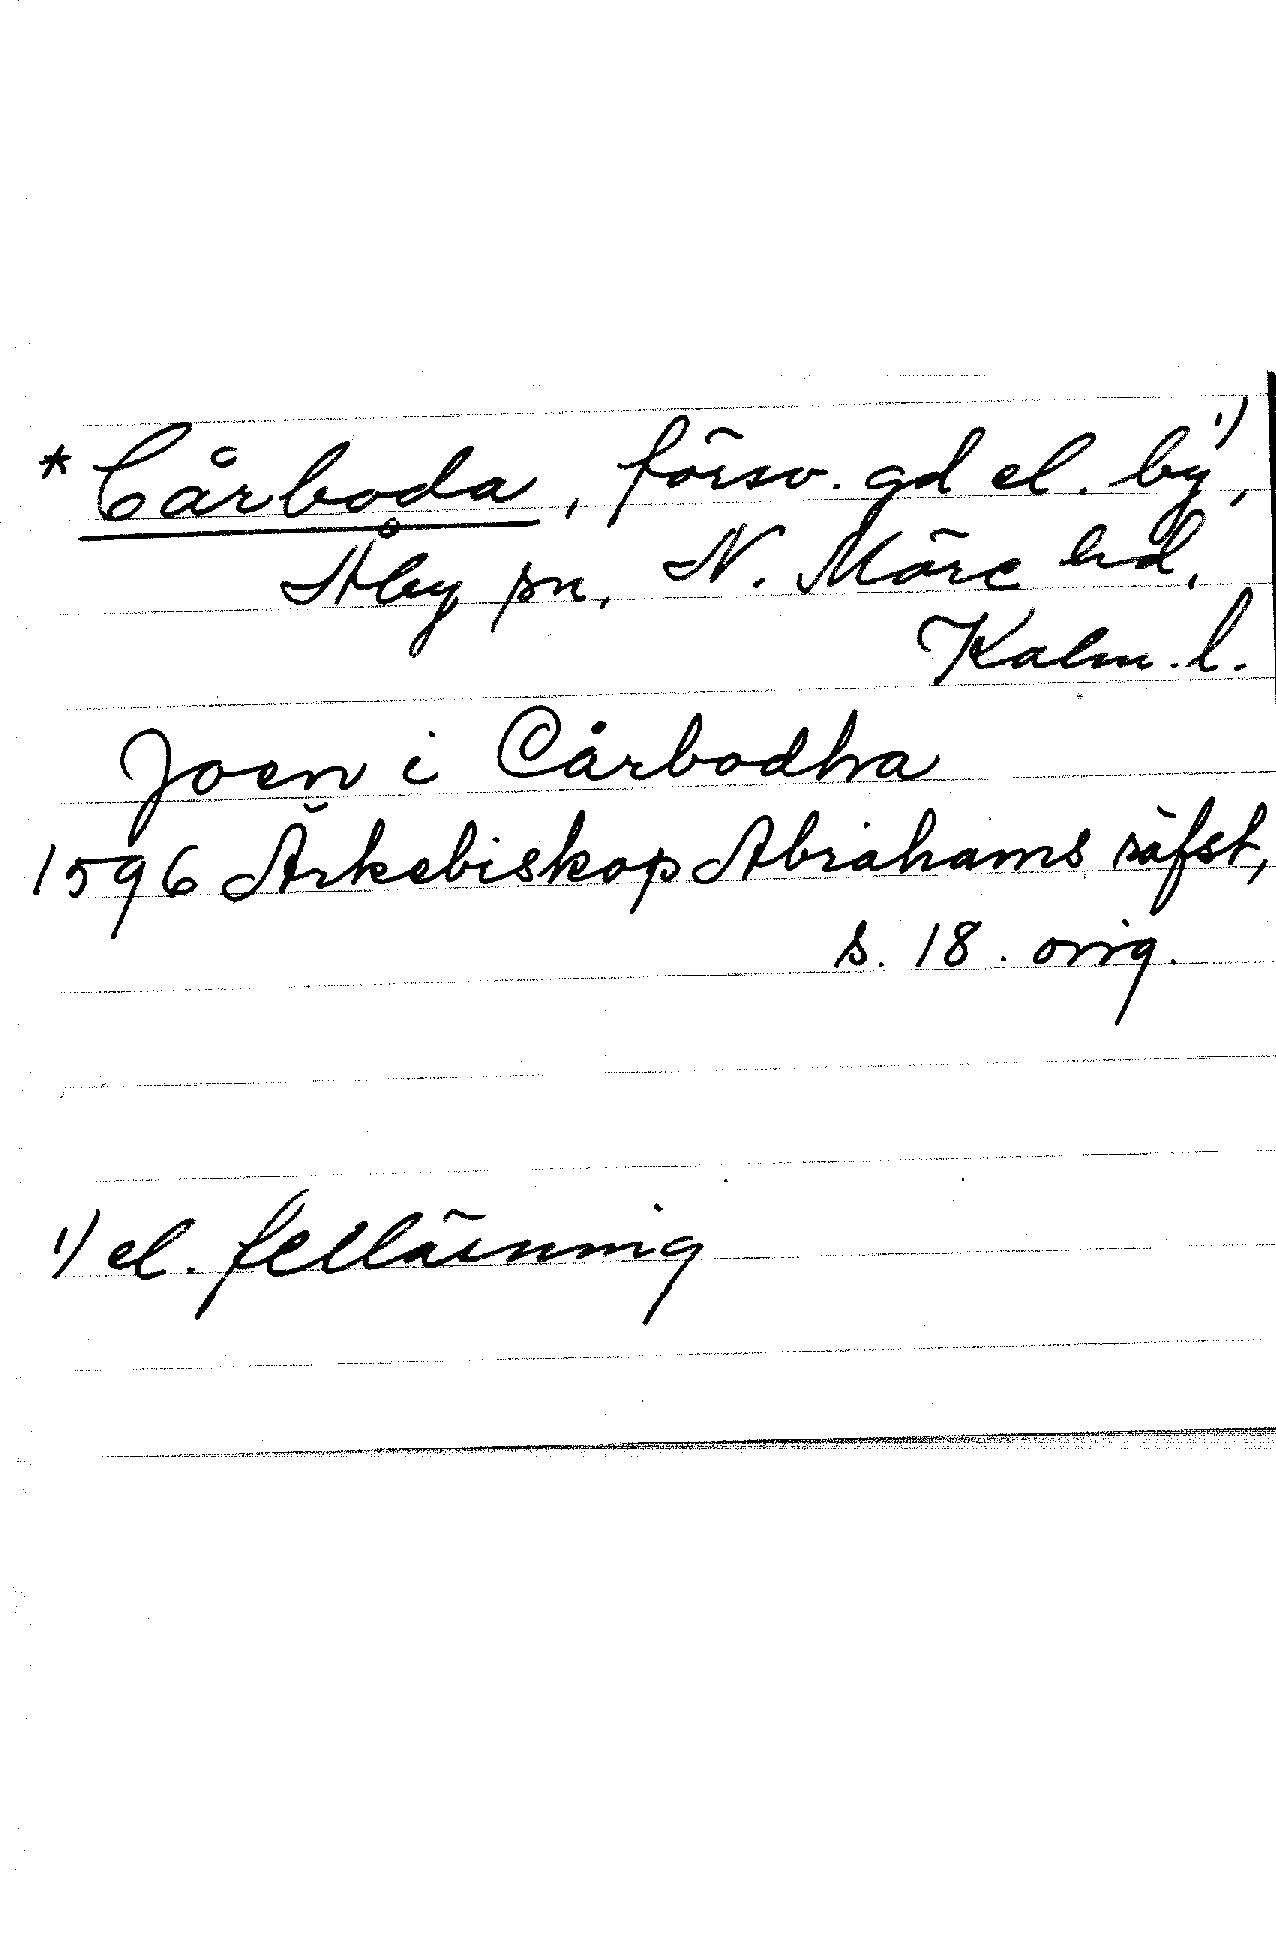 * Cårboda, försv. gd el. by¹⁾,
Åby sn, N. Möre hd,
Kalm. l.
Joen i Cårbodha
1596 Ärkebiskop Abrahams räfst,
s. 18. orig.
¹⁾ el. felläsning